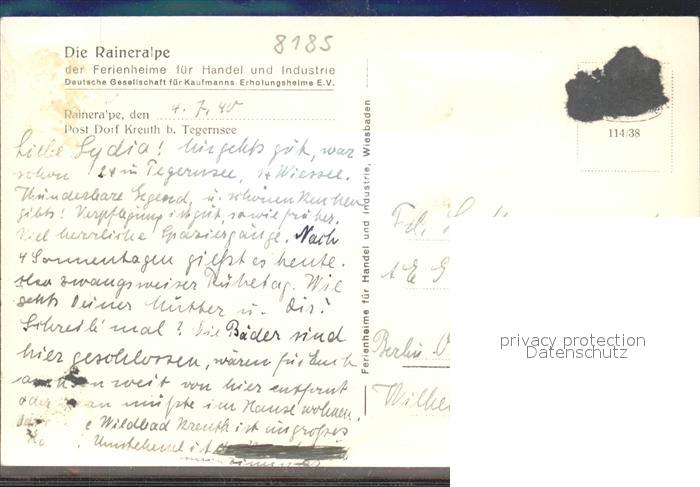 8185
Die Raineralpe
der Ferienheime für Handel und Industrie
Deutsche Gesellschaft für Kaufmanns-Erholungsheime E.V.
Raineralpe, den 4. 7. 40
Post Dorf Kreuth b. Tegernsee
Liebe Lydia! hir gehts gut, war
schon 2x in Tegernsee, 1x Wiessee.
Wunderbare Gegend, u. schönen Kuchen
gibts! Verpflegung ist gut, so wie früher.
Viel herrliche Spaziergänge. Nach
4 Sonnentagen gießt es heute.
Also zwangsweiser Ruhetag. Wie
gehts Deiner Mutter u. Dir?
Schreib' mal? Die Bäder sind
hier geschlossen, wären für Euch
weit von hier entfernt
oder man müßte im Hause wohnen.
Wildbad Kreuth ist ein großes
Umstehend ist
Ferienheime für Handel und Industrie, Wiesbaden
114/38
Frl.
Berlin
Wilhe
privacy protection
Datenschutz